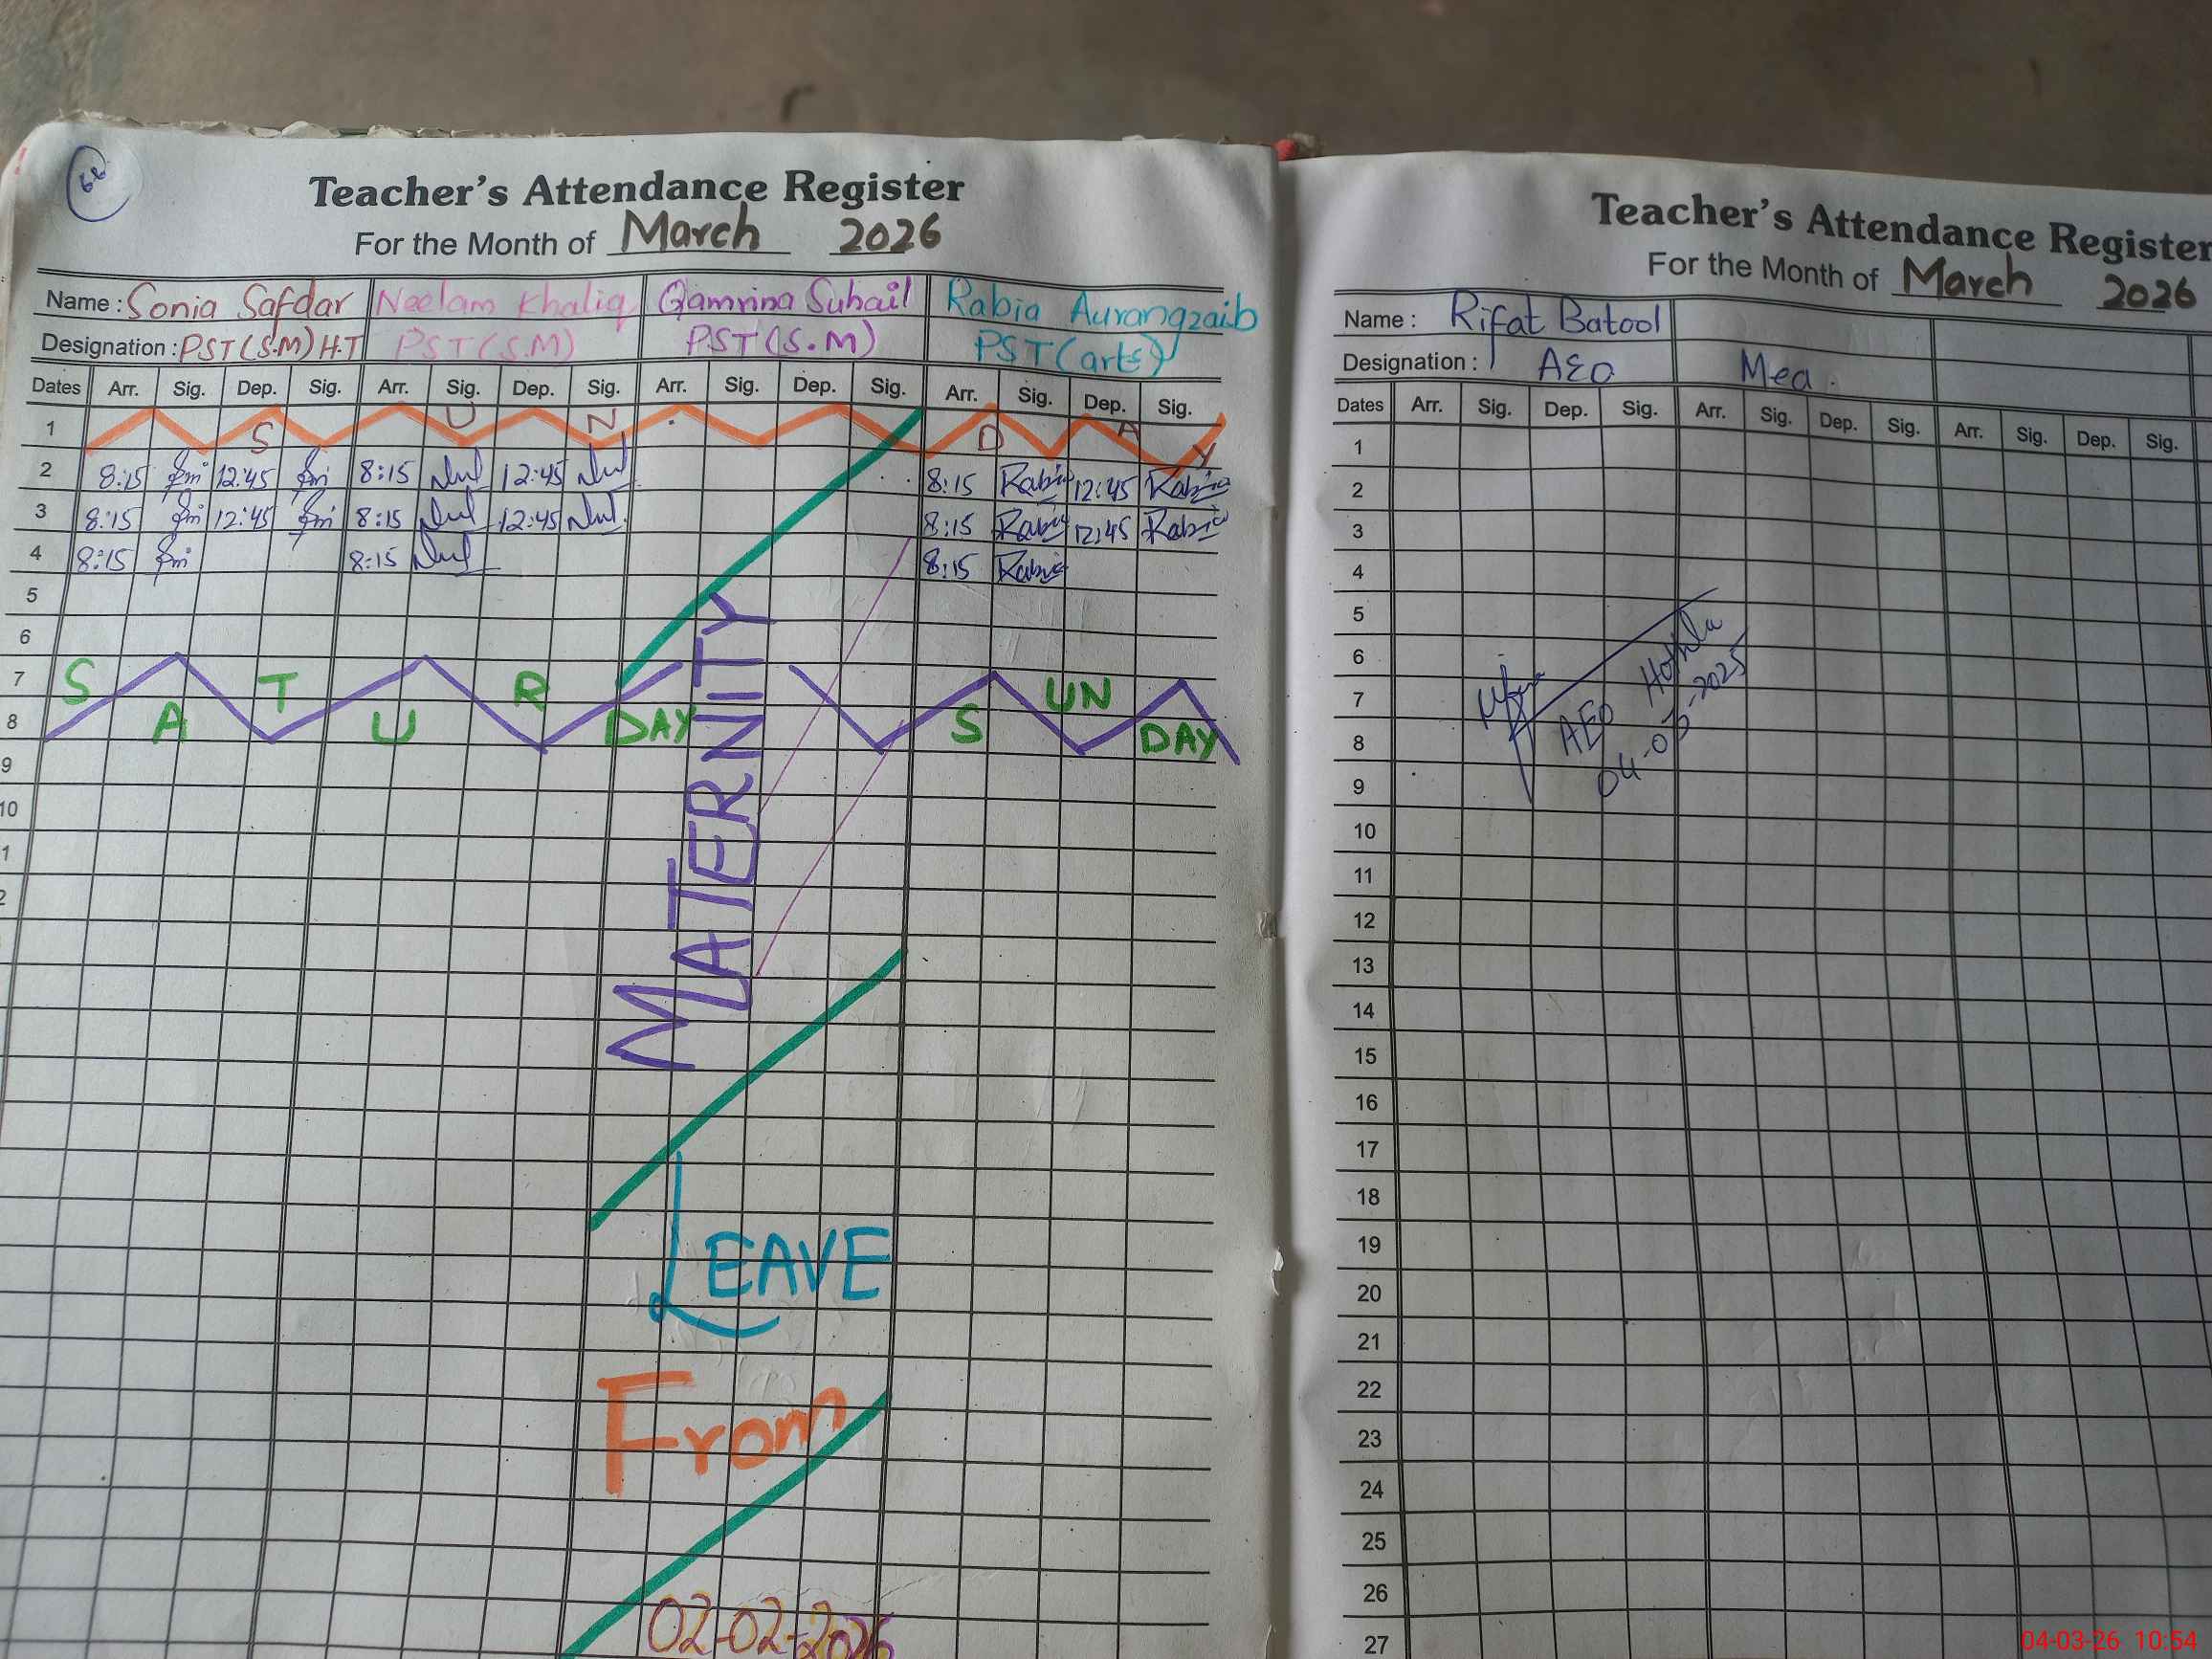 66
Teacher's Attendance Register
For the Month of March 2026
Name: Sonia Safdar Neelam Khaliq Qamrina Suhail Rabia Aurangzaib
Designation: PST(S.M) H.T PST(S.M) PST(S.M) PST(arts)
Dates Arr. Sig. Dep. Sig. Arr. Sig. Dep. Sig. Arr. Sig. Dep. Sig. Arr. Sig. Dep. Sig.
1 S U N D A Y
2 8:15 12:45 8:15 12:45 8:15 Rabia 12:45 Rabia
3 8:15 12:45 8:15 12:45 8:15 Rabia 12:45 Rabia
4 8:15 8:15 8:15 Rabia
5
6
7 S T R UN
8 A U DAY S DAY
9
10
1
2
MATERNITY
LEAVE
From
02-02-2026
Teacher's Attendance Register
For the Month of March 2026
Name: Rifat Batool
Designation: AEO Mea.
Dates Arr. Sig. Dep. Sig. Arr. Sig. Dep. Sig. Arr. Sig. Dep. Sig.
1
2
3
4
5
6
7
8
9
10
11
12
13
14
15
16
17
18
19
20
21
22
23
24
25
26
27
AEO Hothla
04-03-2025
04-03-26 10:54